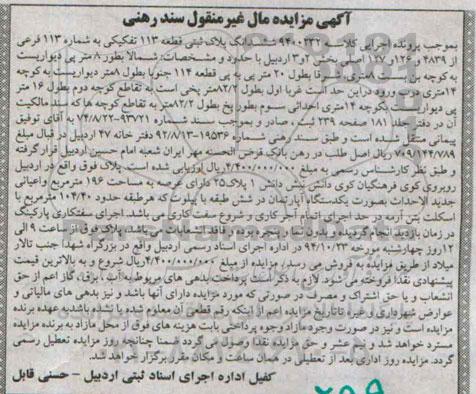 آگهی مزایده مال غیرمنقول سند رهنی
بموجب پرونده اجرایی کلاسه ۹۴۰۰۳۳۲ ششدانگ پلاک ثبتی قطعه ۱۱۳ تفکیکی به شماره ۱۱۳ فرعی
از ۴۸۳۹ و ۱۲۶و ۱۲۷ اصلی بخش ۲و۳ اردبیل با حدود و مشخصات: شمالا بطور ۸ متر پی دیواریست
به کوچه طول ۲۰ متر پی به پی قطعه ۱۱۴ جنوبا بطول ۸متر دیواریست به کوچه
۱۴متری دوم ورود دراین حد است غربا اول بطول ۲/۸۲متر پخی است به تقاطع کوچه دوم بطول ۱۶ متر
پی دیواریست بکوچه ۱۴متری احداثی سوم بطور پخ بطول ۲/۸۲متر به تقاطع کوچه ها که سند مالکیت
آن در دفتر جلد ۱۸۱ صفحه ۲۳۹ ثبت و صادر و بموجب سند شماره ۹۳۷۲۱-۷۴/۸/۲۲ به آقای توفیق
پیمانی منتقل شده است و طبق سند رهنی شماره ۱۹۵۳۶-۹۲/۸/۱۳ دفتر خانه ۴۷ اردبیل در قبال مبلغ
۷۰۹/۱۲۴/۷۸۹ ریال اصل طلب در رهن بانک قرض الحسنه مهر ایران شعبه امام حسین اردبیل قرارگرفته
و طبق نظر کارشناس رسمی به مبلغ ۴/۴۰۰/۰۰۰/۰۰۰ ریال ارزیابی شده است. پلاک فوق واقع در اردبیل
روبروی کوی فرهنگیان کوی دانش نبش دانش ۱ پلاک۲۵ دارای عرصه به مساحت ۱۹۶ مترمربع واعیانی
جدید الاحداث بصورت یکدستگاه آپارتمان در شش طبقه با پیلوت که هرطبقه حدود ۱۰۴/۴۰ مترمربع با
اسکلت بتن آرمه در حد اجرای اتمام آجر کاری و شروع سفت کاری می باشد. اجرای سفتکاری پارکینگ
در زمان بازدید انجام نگردیده و بدون در و پنجره می باشد و فاقد انشعابات می باشد، پلاک فوق از ساعت ۹ الی
۱۲روز چهارشنبه مورخه ۹۴/۱۰/۲۳ در اداره اجرای اسناد رسمی اردبیل واقع در بزرگراه شهدا جنب تالار
میلاد از طریق مزایده به فروش می رسد. مزایده از مبلغ ۴/۴۰۰/۰۰۰/۰۰۰ ریال شروع و به بالاترین قیمت
پیشنهادی نقدا فروخته می شود. لازم به ذکر است پرداخت بدهی های مربوط به آب، برق، گاز اعم از حق
انشعاب و یا حق اشتراک و مصرف در صورتی که مورد مزایده دارای آنها باشد و نیز بدهی های مالیاتی و
عوارض شهرداری و غیره تاتاریخ مزایده اعم از اینکه رقم قطعی آن معلوم شده یا نشده باشد به عهده برنده
مزایده است و نیز در صورت وجود مازاد وجوه پرداختی بابت هزینه های فوق از محل مازاد به برنده مزایده
مسترد خواهد شد و نیم عشر و حق مزایده نقدا وصول می گردد ضمنا چنانچه روز مزایده تعطیل رسمی
گردد. مزایده روز اداری بعد از تعطیلی در همان ساعت و مکان مقرر برگزار خواهد شد.
کفیل اداره اجرای اسناد ثبتی اردبیل - حسنی قابل